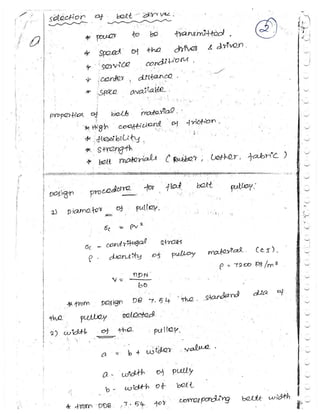 selection of belt drive.
2
* power to be transmitted.
* speed of the driver & driven
* service conditions
* center distance
* space available
properties of belt material.
* High coefficient of friction.
* flexibility
* strength
* belt materials ( Rubber, Lether, fabric )
Design procedure for flat belt pulley.
1) Diameter of pulley.
σc = ρv²
σc - centrifugal stress
ρ - density of pulley material (CI).
ρ = 7200
V = πDN / 60
* from Design DB 7.54 the standard dia of
the pulley selected
2) width of the pulley.
a = b + wider value.
a - width of pully
b - width of belt
* from DDB .7.54 for corresponding beltt width